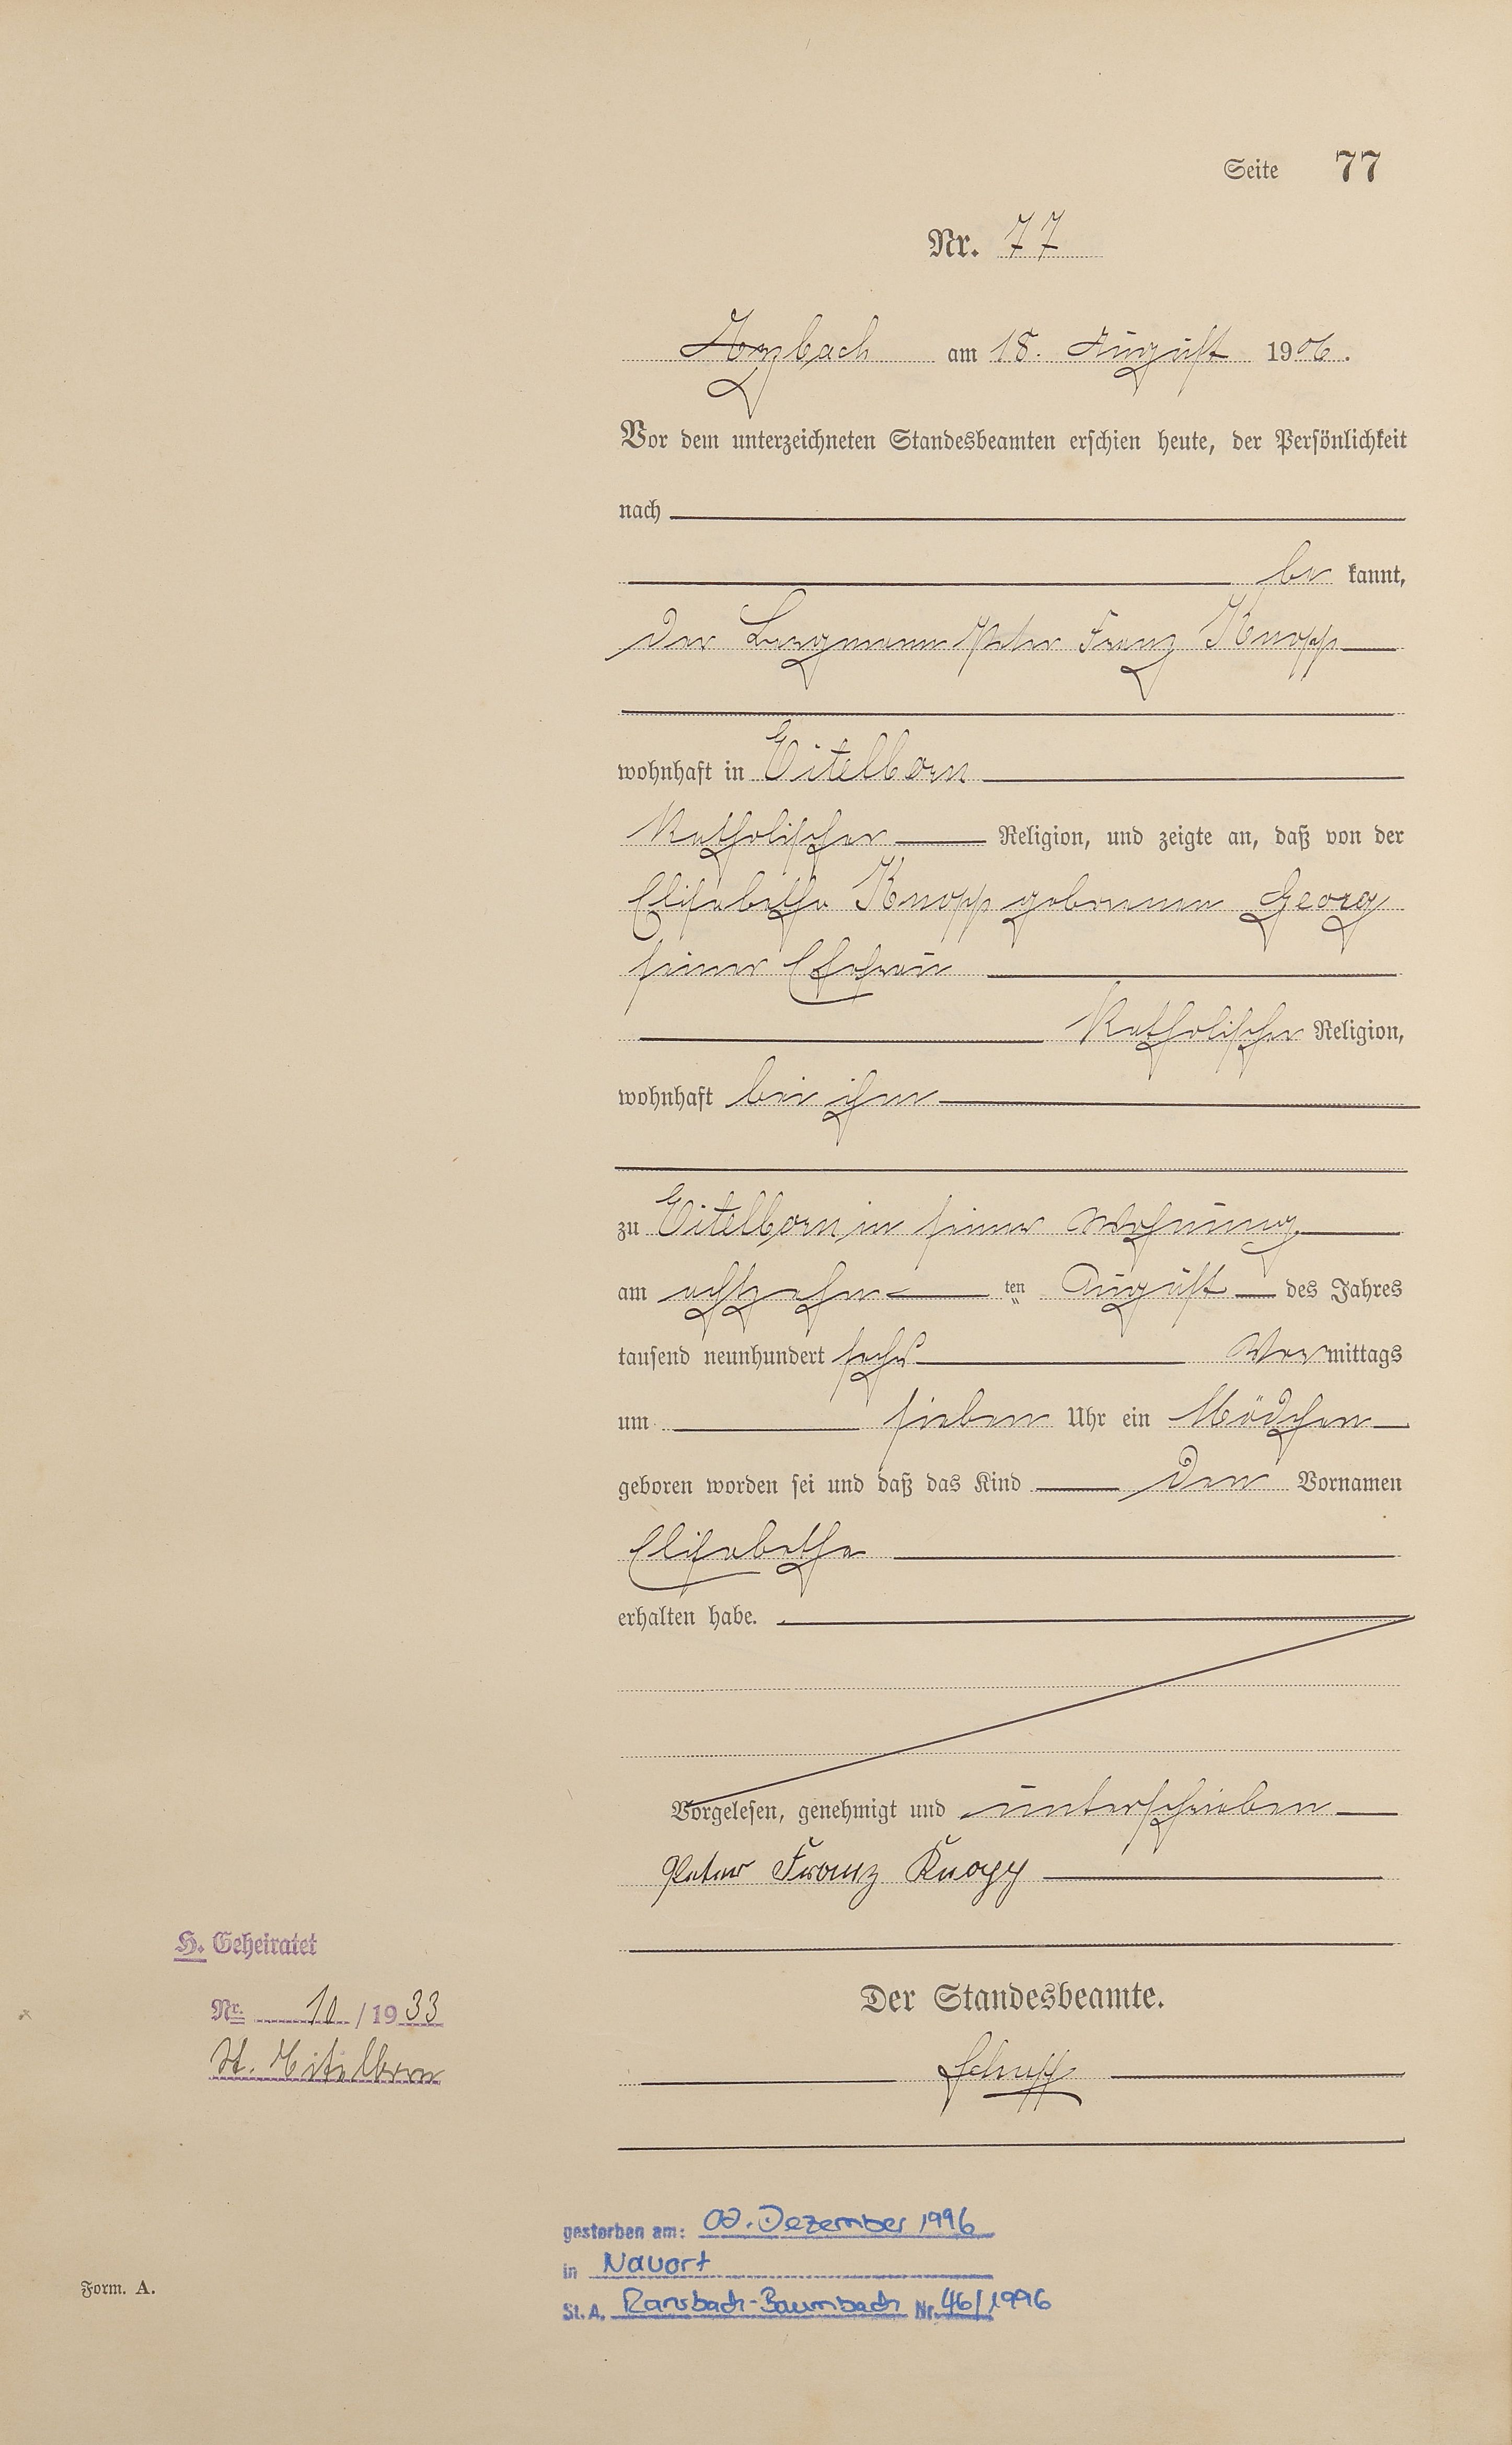 Seite 77
Nr. 77
Arzbach am 18. August 1906.
Vor dem unterzeichneten Standesbeamten erschien heute, der Persönlichkeit
nach
be kannt,
der Bergmann Peter Franz Knopp
wohnhaft in Eitelborn
Katholischer Religion, und zeigte an, daß von der
Elisabetha Knopp geborenen Georg
seiner Ehefrau
Katholischer Religion,
wohnhaft bei ihm
zu Eitelborn in seiner Wohnung
am achtzehn ten August des Jahres
tausend neunhundert sechs Vormittags
um sieben Uhr ein Mädchen
geboren worden sei und daß das Kind den Vornamen
Elisabetha
erhalten habe.
Vorgelesen, genehmigt und unterschrieben
Peter Franz Knopp
H. Geheiratet
Nr. 10 / 1933
St. Eitelborn
Der Standesbeamte.
Schupp
gestorben am: Dezember 1996
in Nauort
St. A. Ransbach-Baumbach Nr. 46/1996
Form. A.